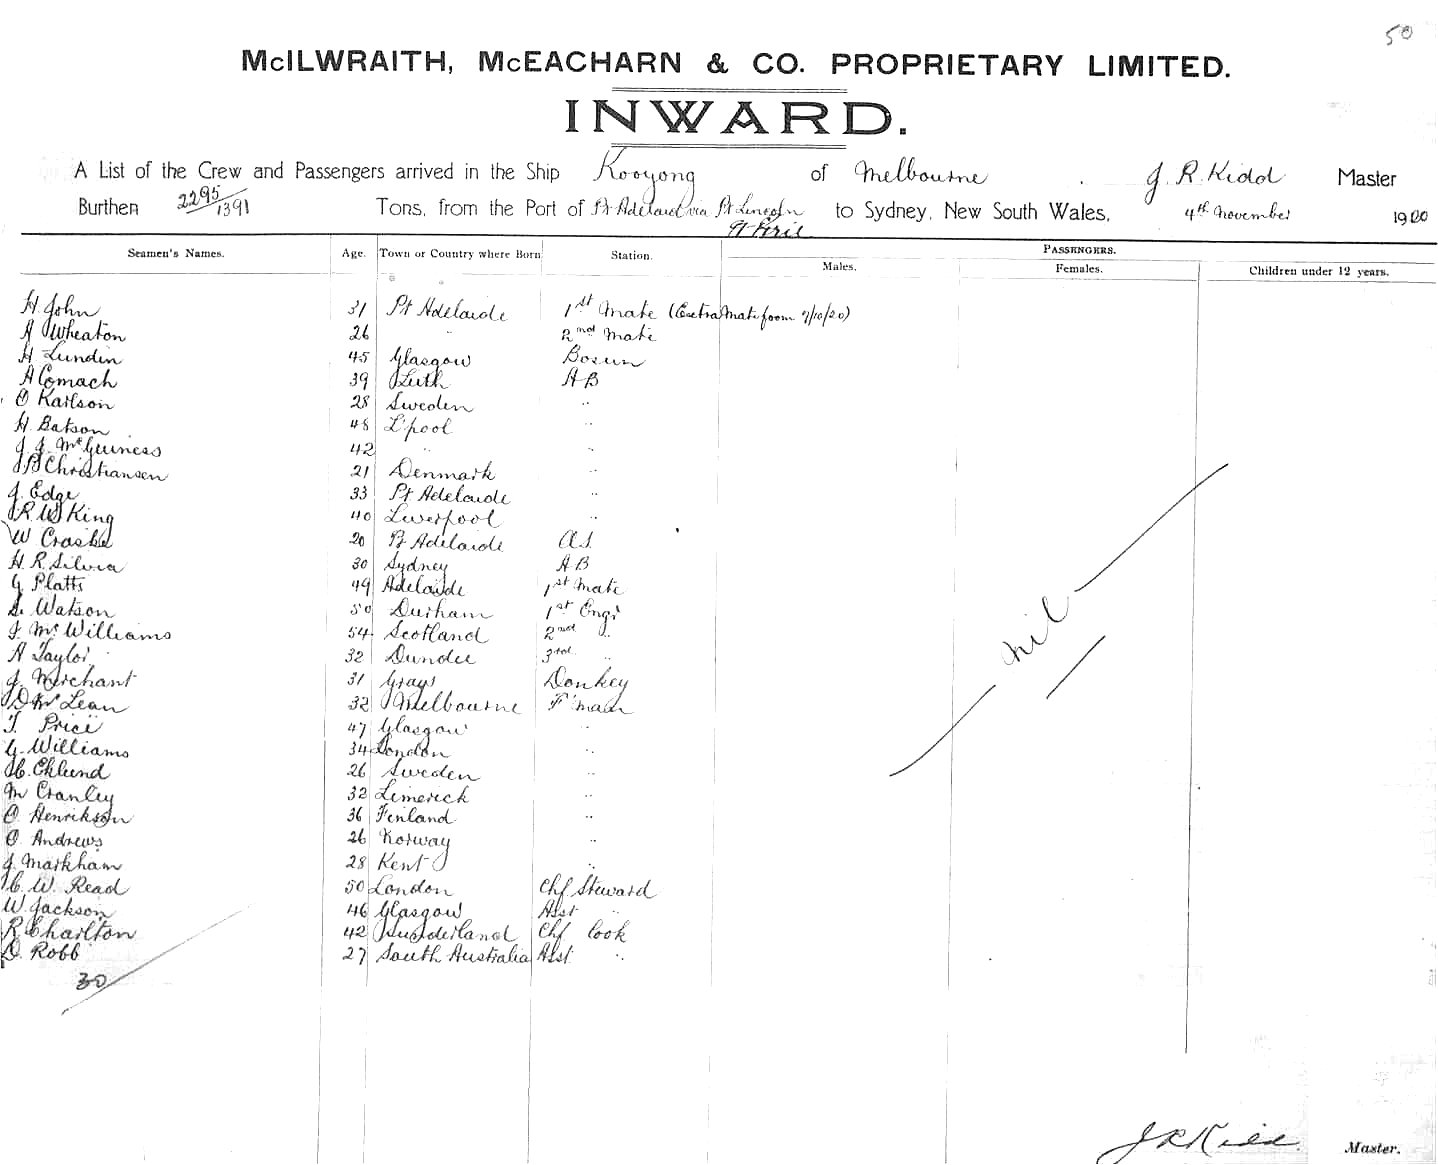 50
McILWRAITH, McEACHARN & CO. PROPRIETARY LIMITED.
INWARD.
A List of the Crew and Passengers arrived in the Ship Kooyong of Melbourne . J. R. Kidd Master
Burthen 2295/1391 Tons, from the Port of Pt Adelaide via Pt Lincoln to Sydney, New South Wales, 4th November 1920
Pt Pirie
Seamen's Names. Age. Town or Country where Born Station. PASSENGERS.
Males. Females. Children under 12 years.
H. John 31 Pt Adelaide 1st Mate (Extra Mate from 7/10/20)
A Wheaton 26 " 2nd Mate
H Lundin 45 Glasgow Bosun
A Comach 39 Leith AB
O Karlson 28 Sweden "
H. Batson 48 L'pool "
J. J. McGuiness 42 " "
Christiansen 21 Denmark "
J. Edge 33 Pt Adelaide "
R. W. King 40 Liverpool "
W Craske 20 Pt Adelaide O.S.
H. R. Silvia 30 Sydney AB
G Platts 49 Adelaide 1st Mate
Watson 50 Durham 1st Engr
J. McWilliams 54 Scotland 2nd "
A Taylor 32 Dundee 3rd "
J. Merchant 31 Grays Donkey
D McLean 32 Melbourne F'man
T. Price 47 Glasgow "
G. Williams 34 London "
Eklund 26 Sweden "
M Cranley 32 Limerick "
O. Henrikson 36 Finland "
O Andrews 26 Norway "
J. Markham 28 Kent "
C. W. Read 50 London Chf Steward
W. Jackson 46 Glasgow Asst "
R Charlton 42 Sunderland Chf Cook
D. Robb 27 South Australia Asst "
30
nil
J R Kidd Master.